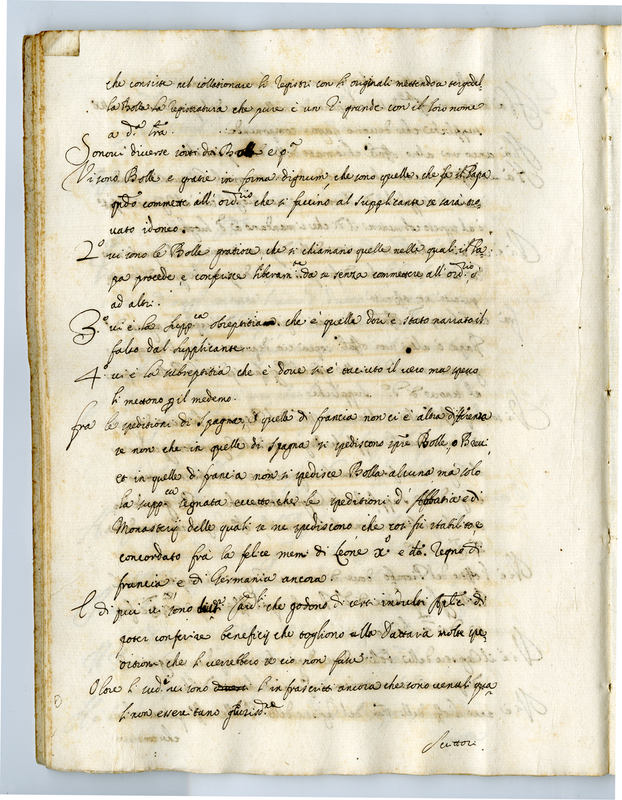 che consiste nel collationare li registri con li originali mettendo a tergo del
la Bolla la registratura che pure è un R grande con il loro nome
a d.ª lra.
Sonovi diverse sorti di Bolle e p.ª
Vi sono Bolle e gratie in forma dignum, che sono quelle, che fa il Papa
qndo commette all'ord.rio che si faccino al supplicante se sarà tro
vato idoneo.
2.º vi sono le Bolle gratiose che si chiamano quelle nelle quali il Pa
pa procede, e conferisce liberam.te da se senza commettere all'ord.rio ò
ad altri.
3.º vi è la supp.ca obreptitia che è quella dov'è stato narrato il
falso dal supplicante.
4.º vi è la subreptitia che è dove si è taciuto il vero ma spesso
si mettono p il medemo.
fra le speditioni di Spagna, e quelle di francia non ci è altra differenza
se non che in quelle di Spagna si spediscono spre Bolle, o Brevi
et in quelle di francia non si spedisce Bolla alcuna ma solo
la supp.ca segnata eccetto che le speditioni d'Abbatia e di
Monasterij delle quali se ne spediscono, che così fu stabilito e
concordato frà la felice mem: di Leone Xº e do. Regno di
francia e di Germania ancora.
E di più vi sono Card.li che godono di certi indulti Aplici di
poter conferire beneficij che togliono alla Dattaria molte spe
ditioni che li verrebbero se ciò non fusse
Oltre li sud.i vi sono li infrascritti ancora che sono venali qua
li non essercitano giurisd.ne
Scrittori